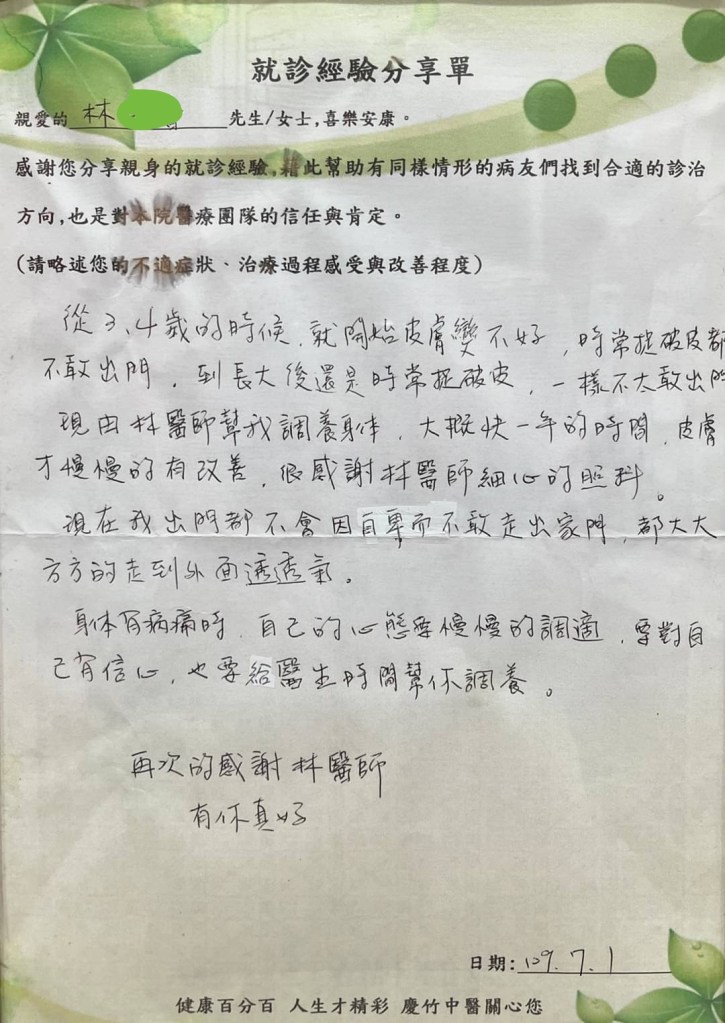 就診經驗分享單
親愛的 林 先生/女士,喜樂安康。
感謝您分享親身的就診經驗,藉此幫助有同樣情形的病友們找到合適的診治
方向,也是對本院醫療團隊的信任與肯定。
(請略述您的不適症狀、治療過程感受與改善程度)
從3、4歲的時候,就開始皮膚變不好,時常抓破皮都
不敢出門,到長大後還是時常抓破皮,一樣不太敢出門
現由林醫師幫我調養身体,大概快一年的時間,皮膚
才慢慢的有改善,很感謝林醫師細心的照料。
現在我出門都不會因自卑而不敢走出家門,都大大
方方的走到外面透透氣。
身体有病痛時,自己的心態要慢慢的調適,要對自
己有信心,也要給醫生時間幫你調養。
再次的感謝林醫師
有你真好
日期:109.7.1
健康百分百 人生才精彩 慶竹中醫關心您